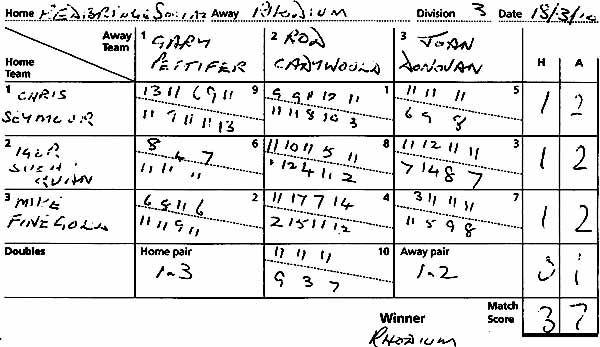 Home Away RHODIUM Division 3 Date 18/3/
Home Team Away Team 1 GARY PETTIFER 2 ROD CADYWOULD 3 JOAN DONOVAN H A
1 CHRIS SEYMOUR 9 13 11 6 9 11 1 9 9 11 12 11 5 11 11 11 1 2
11 9 11 11 13 11 11 8 10 3 6 9 8
2 6 8 4 7 8 11 10 11 5 11 3 11 12 11 11 1 2
11 11 11 12 4 11 2 7 14 8 7
3 MIKE FINEGOLD 2 6 8 11 6 4 11 17 7 14 7 3 11 11 11 1 2
11 11 9 11 2 15 11 12 11 5 9 8
Doubles Home pair 10 11 11 11 Away pair 3 1
1-3 9 3 7 1-2
Match Score 3 7
Winner
RHODIUM